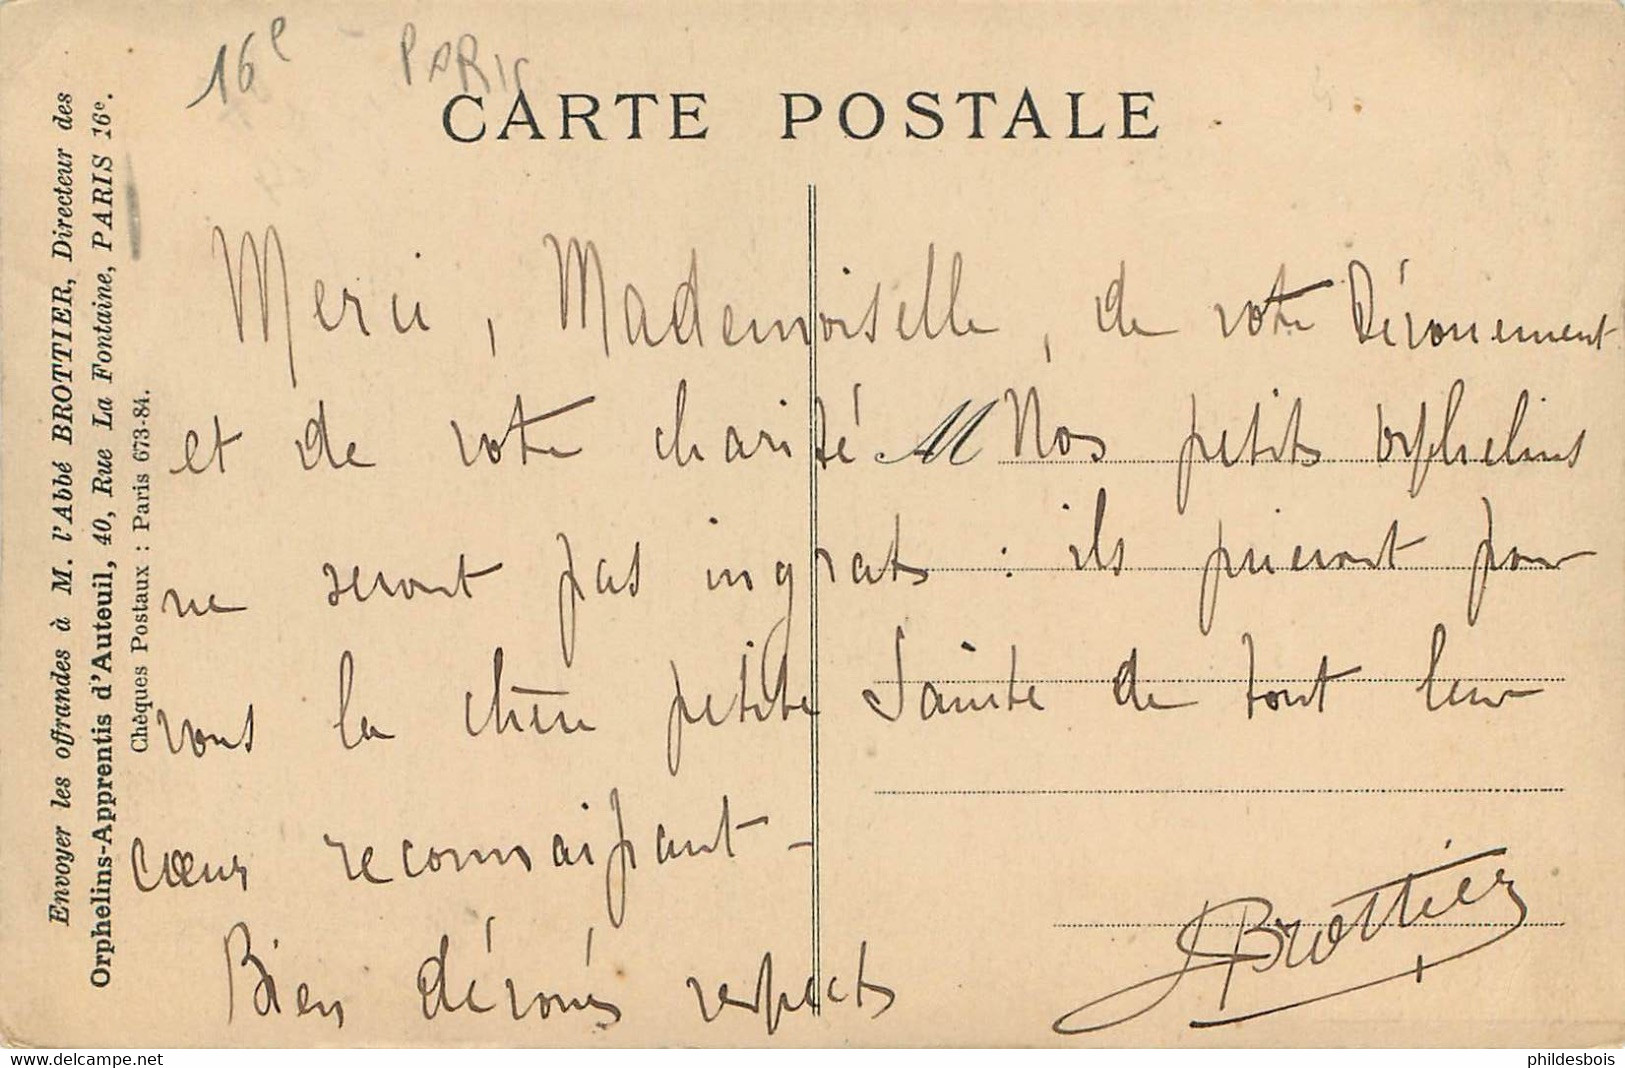 16e - PARIS
CARTE POSTALE
Envoyer les offrandes à M. l'Abbé BROTTIER, Directeur des
Orphelins-Apprentis d'Auteuil, 40, Rue La Fontaine, PARIS 16e.
Chèques Postaux : Paris 673-84.
Merci, Mademoiselle, de votre Dévouement
et de votre charité M Nos petits orphelins
ne seront pas ingrats : ils prieront pour
vous la chère petite Sainte de tout leur
cœur reconnaissant -
Bien dévoués respects
Brottier
www.delcampe.net
phildesbois